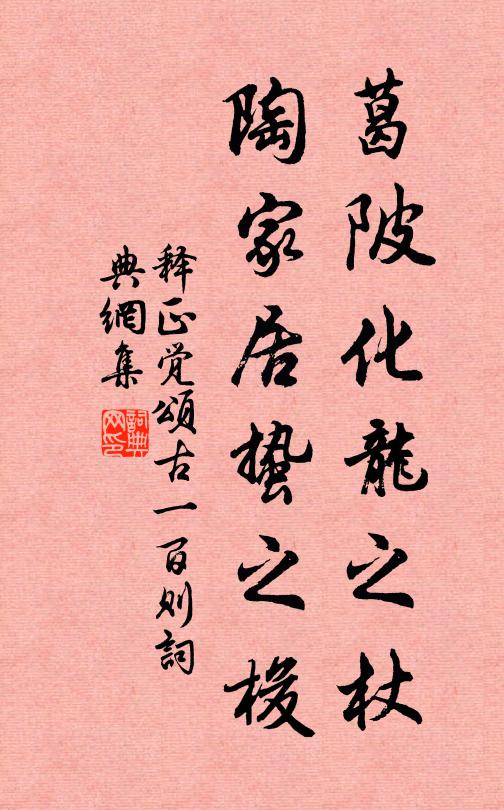 葛陂化龍之杖
陶家居蟄之梭
释正觉頌古一百则詞
典網集
詞典網印